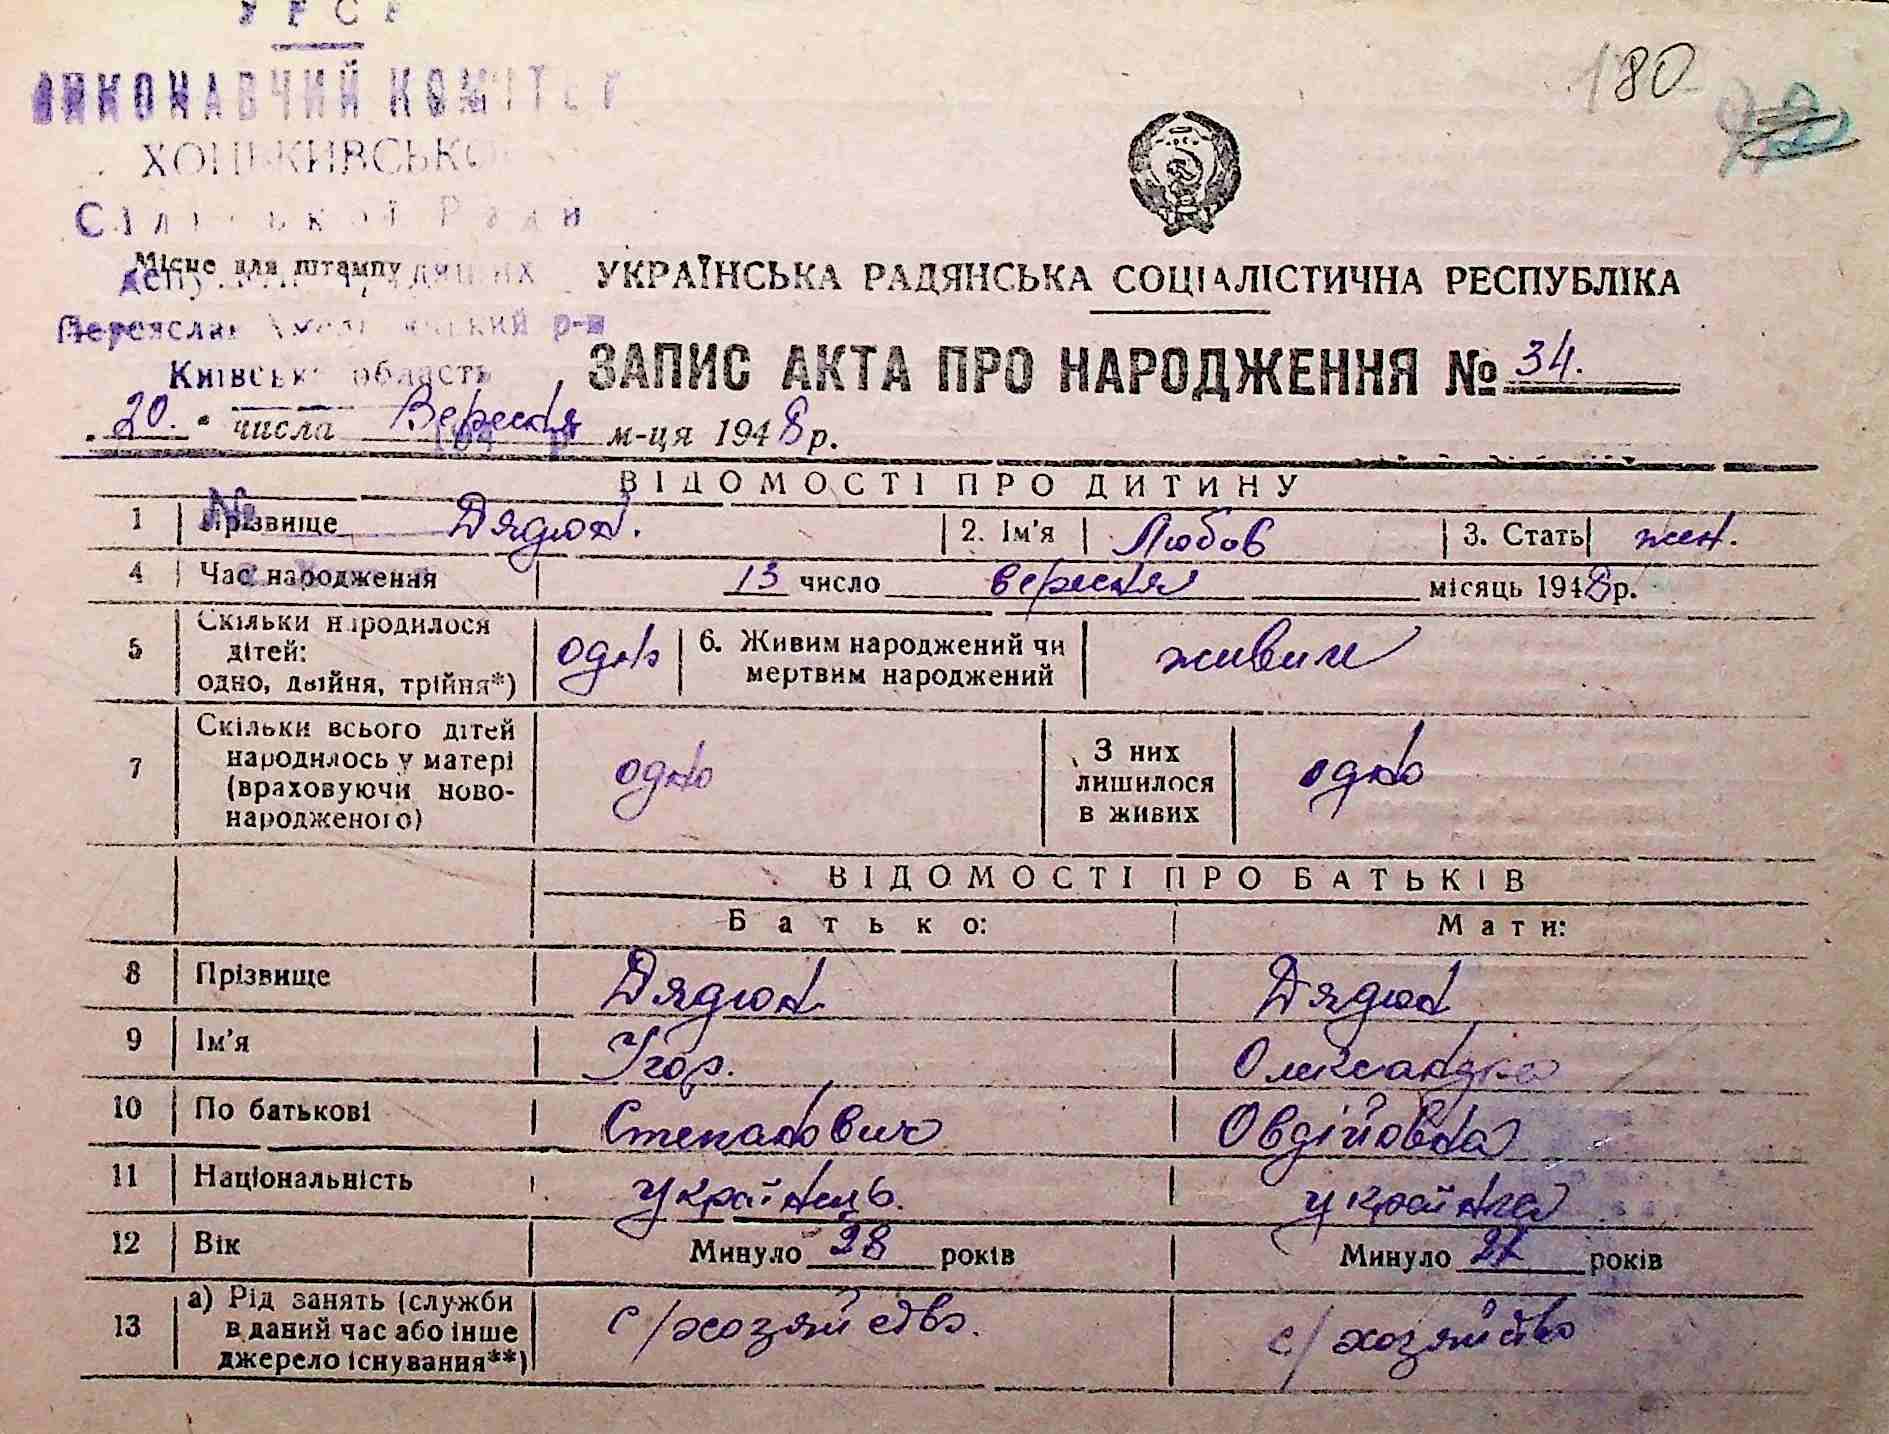 УРСР
ВИКОНАВЧИЙ КОМІТЕТ
180
Місце для штампу
УКРАЇНСЬКА РАДЯНСЬКА СОЦІАЛІСТИЧНА РЕСПУБЛІКА
р-н
Київська область
ЗАПИС АКТА ПРО НАРОДЖЕННЯ № 34.
„20.“ числа Вересня м-ця 1948 р.
ВІДОМОСТІ ПРО ДИТИНУ
1 Прізвище Дядюн. 2. Ім'я Любов 3. Стать жен.
4 Час народження 13 число вересня місяць 1948 р.
5 Скільки народилося дітей: одно, двійня, трійня*) одно 6. Живим народжений чи мертвим народжений живим
7 Скільки всього дітей народилось у матері (враховуючи новонародженого) одно З них лишилося в живих одно
ВІДОМОСТІ ПРО БАТЬКІВ
Батько: Мати:
8 Прізвище Дядюн Дядюн
9 Ім'я Ігор. Олександра
10 По батькові Степанович Овдійовна
11 Національність українець. українка
12 Вік Минуло 28 років Минуло років
13 а) Рід занять (служби в даний час або інше джерело існування**) с/хозяйство. с/хозяйство